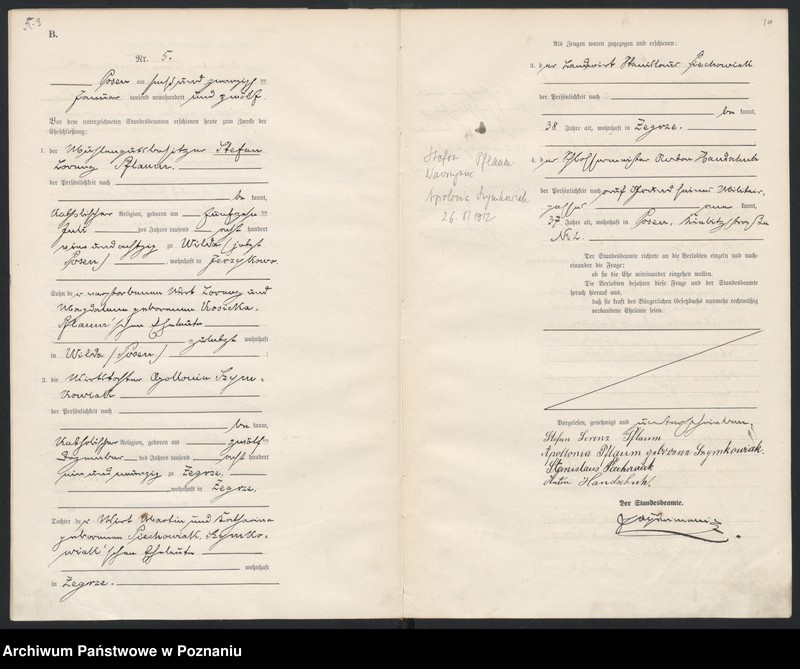 B.
Nr. 5.
Posen am sechsundzwanzigsten
Januar tausend neunhundert und zwölf.
Vor dem unterzeichneten Standesbeamten erschienen heute zum Zwecke der
Eheschließung:
1. der Mühlengutsbesitzer Stefan
Lorenz Pflaum,
der Persönlichkeit nach
be kannt,
katholischer Religion, geboren am fünfzehnten
Juli des Jahres tausend acht hundert
einundachtzig zu Wilda (jetzt
Posen), wohnhaft in Jerzykowo.
Sohn der verstorbenen Wirt Lorenz und
Magdalena geborenen Kosicka,
Pflaum'schen Eheleute
zuletzt wohnhaft
in Wilda (Posen) ;
2. die Wirtstochter Apollonia Szym-
kowiak
der Persönlichkeit nach
be kannt,
katholischer Religion, geboren am zwölften
Dezember des Jahres tausend acht hundert
zu Zegrze.
, wohnhaft in Zegrze.
Tochter der Wirt Martin und Katharina
geborenen Piechowiak, Szymko-
wiak'schen Eheleute
wohnhaft
in Zegrze.
10
Als Zeugen waren zugezogen und erschienen:
3. der Landwirt Stanislaus Piechowiak
der Persönlichkeit nach
be kannt,
38 Jahre alt, wohnhaft in Zegrze.
4. der Schlossermeister Anton Handschuh
der Persönlichkeit nach auf Grund seines Militär-
passes aner kannt,
37 Jahre alt, wohnhaft in Posen,
No 2.
Stefan Pflaum
Wawrzyniec
Apolonia Szymkowiak
26.01.1912
Der Standesbeamte richtete an die Verlobten einzeln und nach-
einander die Frage:
ob sie die Ehe miteinander eingehen wollen.
Die Verlobten bejahten diese Frage und der Standesbeamte
sprach hierauf aus,
daß sie kraft des Bürgerlichen Gesetzbuchs nunmehr rechtmäßig
verbundene Eheleute seien.
Vorgelesen, genehmigt und unterschrieben.
Stefan Lorenz Pflaum
Apollonia Pflaum geborene Szymkowiak.
Stanislaus Piechowiak
Anton Handschuh.
Der Standesbeamte.
Archiwum Państwowe w Poznaniu